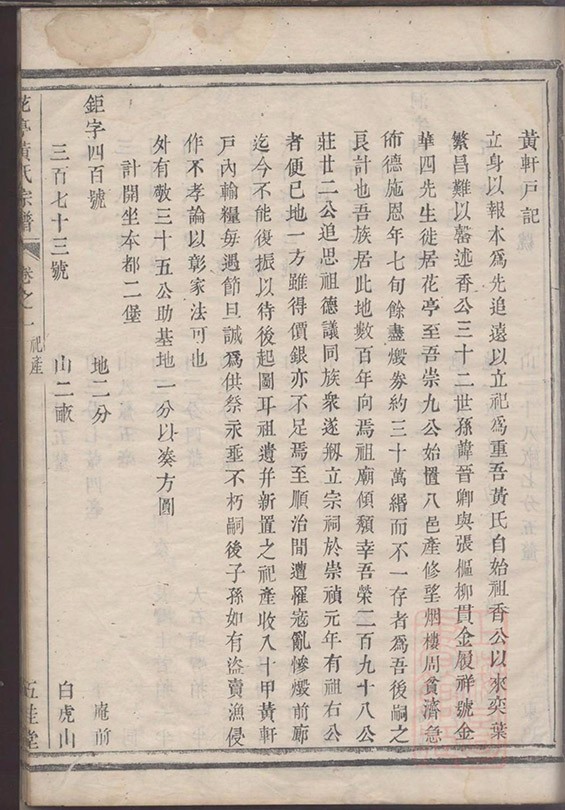 黃軒戸記
立身以報本爲先追遠以立祀爲重吾黃氏自始祖香公以來奕葉
繁昌難以罄述香公三十二世孫諱晉卿與張樞柳貫金履祥號金
華四先生徒居花亭至吾崇九公始置八邑產修望烟樓周貧濟急
佈德施恩年七旬餘盡燬券約三十萬緡而不一存者爲吾後嗣之
良計也吾族居此地數百年向焉祖廟傾頽幸吾榮二百九十八公
莊廿二公追思祖德議同族衆遂剏立宗祠於崇禎元年有祖右公
者便已地一方雖得價銀亦不足焉至順治間遭罹寇亂慘燬前廊
迄今不能復振以待後起圖耳祖遺并新置之祀產收入十甲黃軒
戸內輸糧每遇節旦誠爲供祭永垂不朽嗣後子孫如有盜賣漁侵
作不孝論以彰家法可也
外有敬三十五公助基地一分以湊方圓
計開坐本都二堡
鉅字四百號 地二分 庵前
三百七十三號 山二畝 白虎山
花亭黃氏宗譜 卷之一 祀產 五桂堂